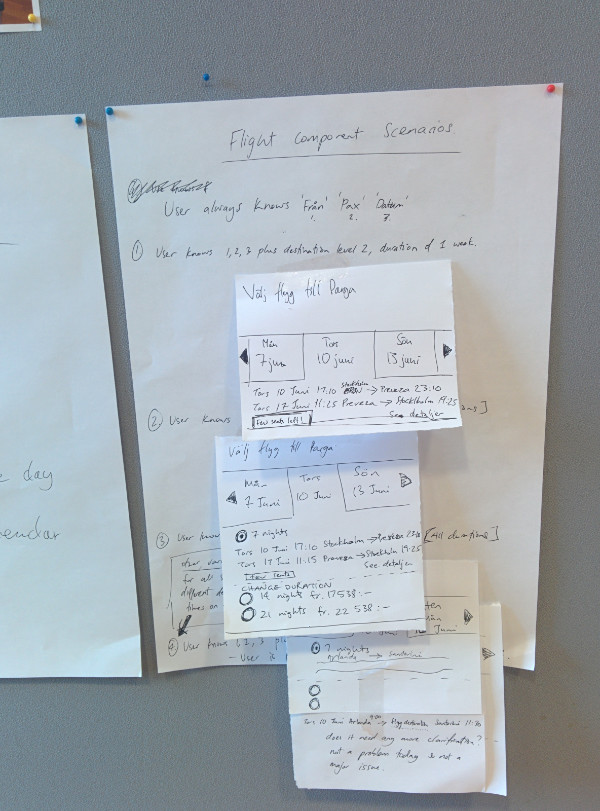 Flight Component Scenarios
User always knows 'Från' 'Pax' 'Datum'
1. 2. 3.
① User knows 1,2,3 plus destination level 2, duration of 1 week.
Välj flyg till Parga
Mån Tors Sön
7 juni 10 juni 13 juni
Tors 10 Juni 17:10 Stockholm → Preveza 23:10
Tors 17 Juni 11:25 Preveza → Stockholm 19:25
Few seats left! See detaljer
② User knows
Välj flyg till Parga
Mån Tors Sön
7 Juni 10 Juni 13 Juni
7 nights
Tors 10 Juni 17:10 Stockholm → Preveza 23:10
Tors 17 Juni 11:15 Preveza → Stockholm 19:25
Few seats See detaljer
CHANGE DURATION
14 nights fr. 17538:-
21 nights fr. 22 538:-
③ User know [All durations]
for all
different
times on
④ User knows 1, 2, 3 pl
- User is
e day
endar
Juni
7 nights
Arlanda → Santorini
Tors 10 Juni Arlanda → Flygdetaljer Santorini 11:30
does it need any more clarification?
not a problem today so not a
major issue.